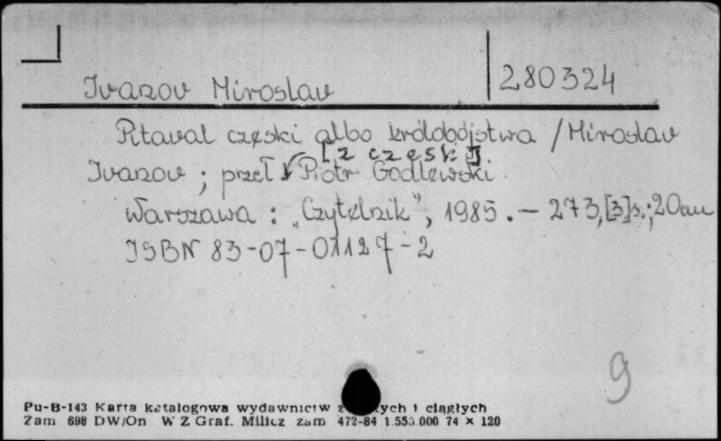 Ivanov Miroslav
280324
Pitaval czeski albo królobójstwa / Miroslav
[z czesk.]
Ivanov ; przeł. Piotr Godlewski.
Warszawa : „Czytelnik”, 1985. – 273,[3]s.; 20cm
ISBN 83-07-01127-2
9
Pu-B-143 Karta katalogowa wydawnictw ciągłych
Zam 698 DW/On W Z Graf. Milicz zam 472-84 1.550.000 74 × 120